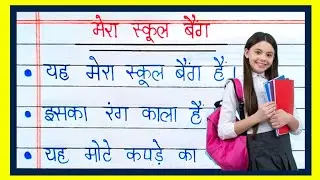 मेरा स्कूल बैग
यह मेरा स्कूल बैग है ।
इसका रंग काला है
यह मोटे कपड़े का